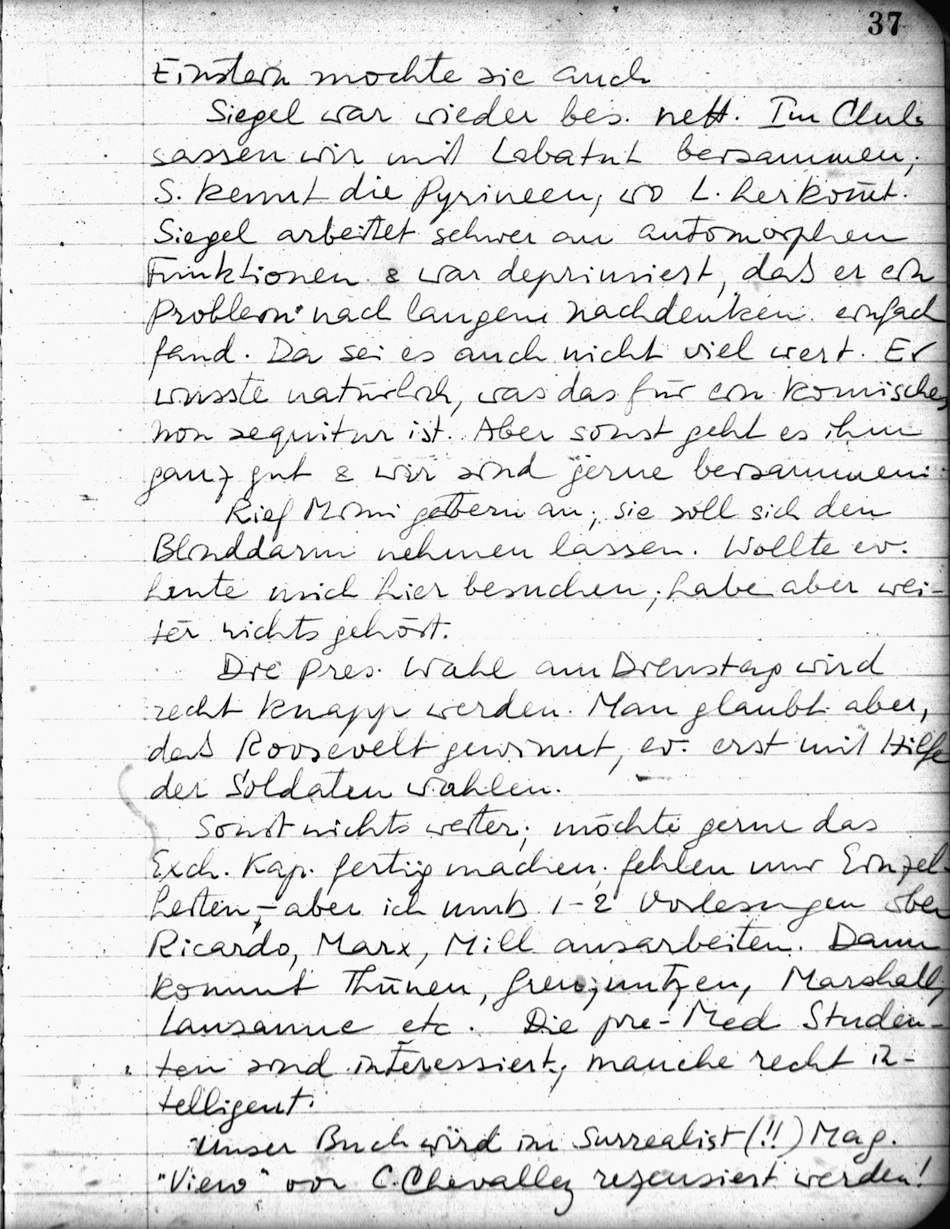 37
Einstein mochte sie auch
Siegel war wieder bes. nett. Im Club
sassen wir mit Labatut beisammen;
S. kennt die Pyrineen, wo L. herkom̄t.
Siegel arbeitet schwer an automorphen
Funktionen & war deprimiert, daß er ein
Problem nach langem Nachdenken einfach
fand. Da sei es auch nicht viel wert. Er
wusste natürlich, was das für ein komisches
non sequitur ist. Aber sonst geht es ihm
ganz gut & wir sind gerne beisammen.
Rief Mimi gestern an; sie soll sich den
Blinddarm nehmen lassen. Wollte ev.
heute mich hier besuchen; habe aber wei-
ter nichts gehört.
Die Pres. Wahl am Dienstag wird
recht knapp werden. Man glaubt aber,
daß Roosevelt gewinnt, ev. erst mit Hilfe
der Soldaten wahlen.
Sonst nichts weiter; möchte gerne das
Exch. Kap. fertig machen; fehlen nur Einzel-
heiten, – aber ich muß 1-2 Vorlesungen über
Ricardo, Marx, Mill ausarbeiten. Dann
kommt Thünen, Grenznutzen, Marshall,
Lausanne etc. Die pre-Med Studen-
ten sind interessiert, manche recht in-
telligent.
Unser Buch wird im Surrealist (!!) Mag.
"View" von C. Chevalley rezensiert werden!